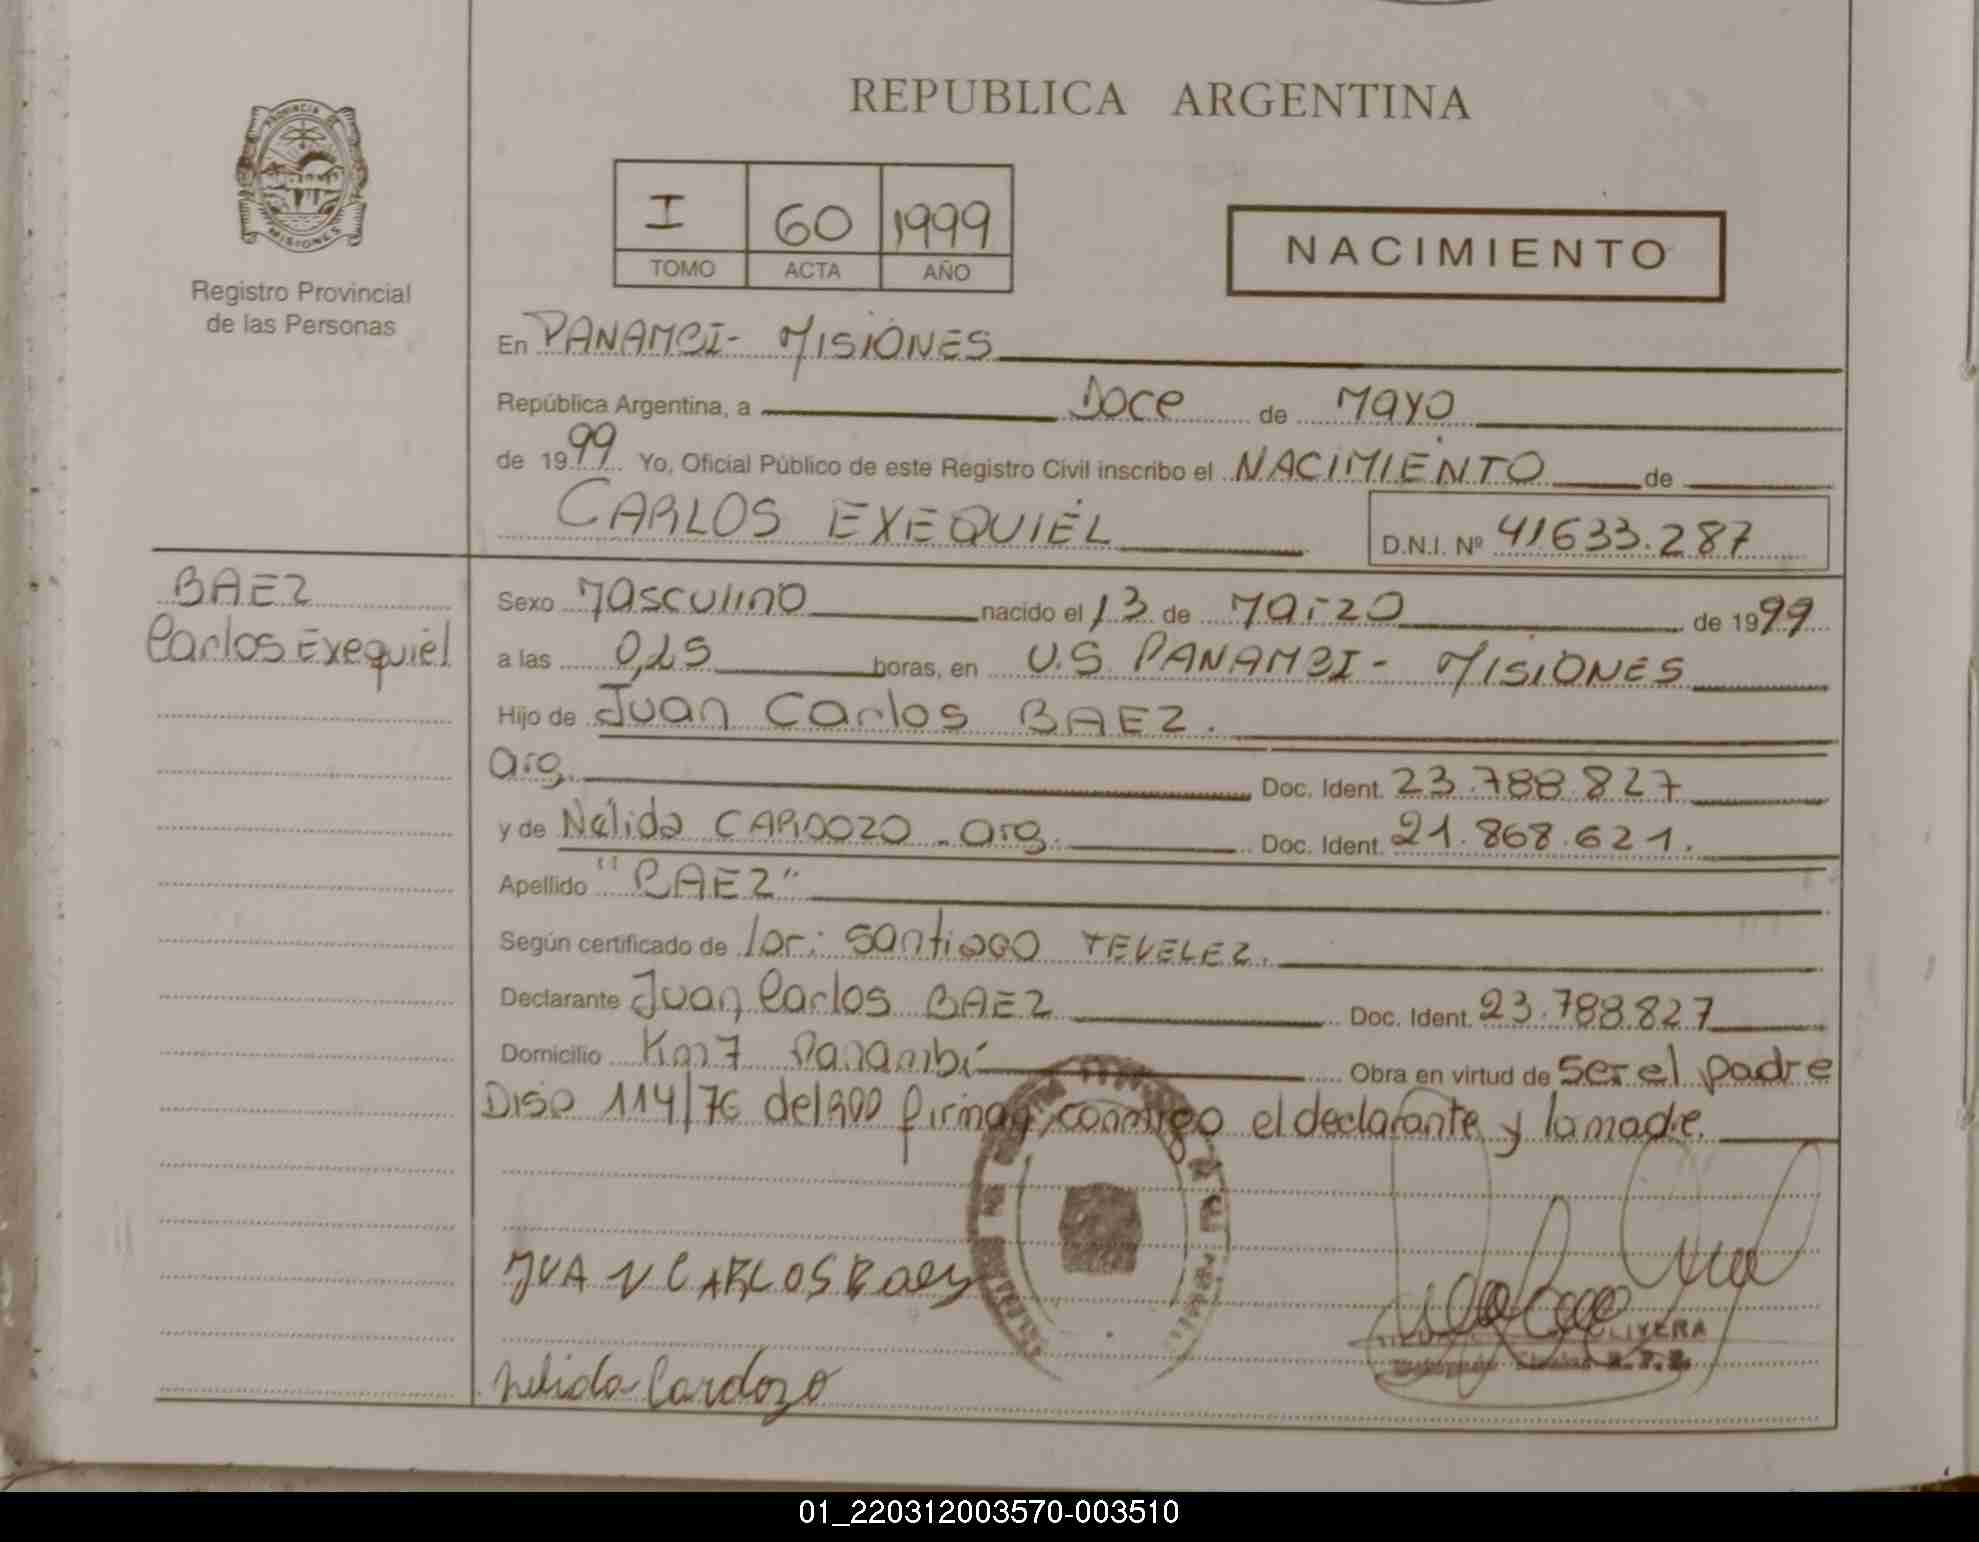 REPUBLICA ARGENTINA
PROVINCIA DE
MISIONES
Registro Provincial
de las Personas
I 60 1999
TOMO ACTA AÑO
NACIMIENTO
En PANAMBI- MISIONES
República Argentina, a Doce de Mayo
de 1999 Yo, Oficial Público de este Registro Civil inscribo el NACIMIENTO de
CARLOS EXEQUIEL D.N.I. Nº 41633.287
BAEZ
Carlos Exequiel
Sexo Masculino nacido el 13 de Marzo de 1999
a las horas, en U.S. PANAMBI- MISIONES
Hijo de Juan Carlos BAEZ.
arg. Doc. Ident. 23.788.827
y de Nélida CARDOZO - arg. Doc. Ident. 21.868.621.
Apellido "BAEZ"
Según certificado de Santiago TEVELEZ.
Declarante Juan Carlos BAEZ Doc. Ident. 23.788.827
Domicilio Km 7 Panambí Obra en virtud de ser el padre
Disp 114/76 del firman conmigo el declarante y la madre.
JUAN CARLOS Baez
OLIVERA
Nelida Cardozo
01_220312003570-003510